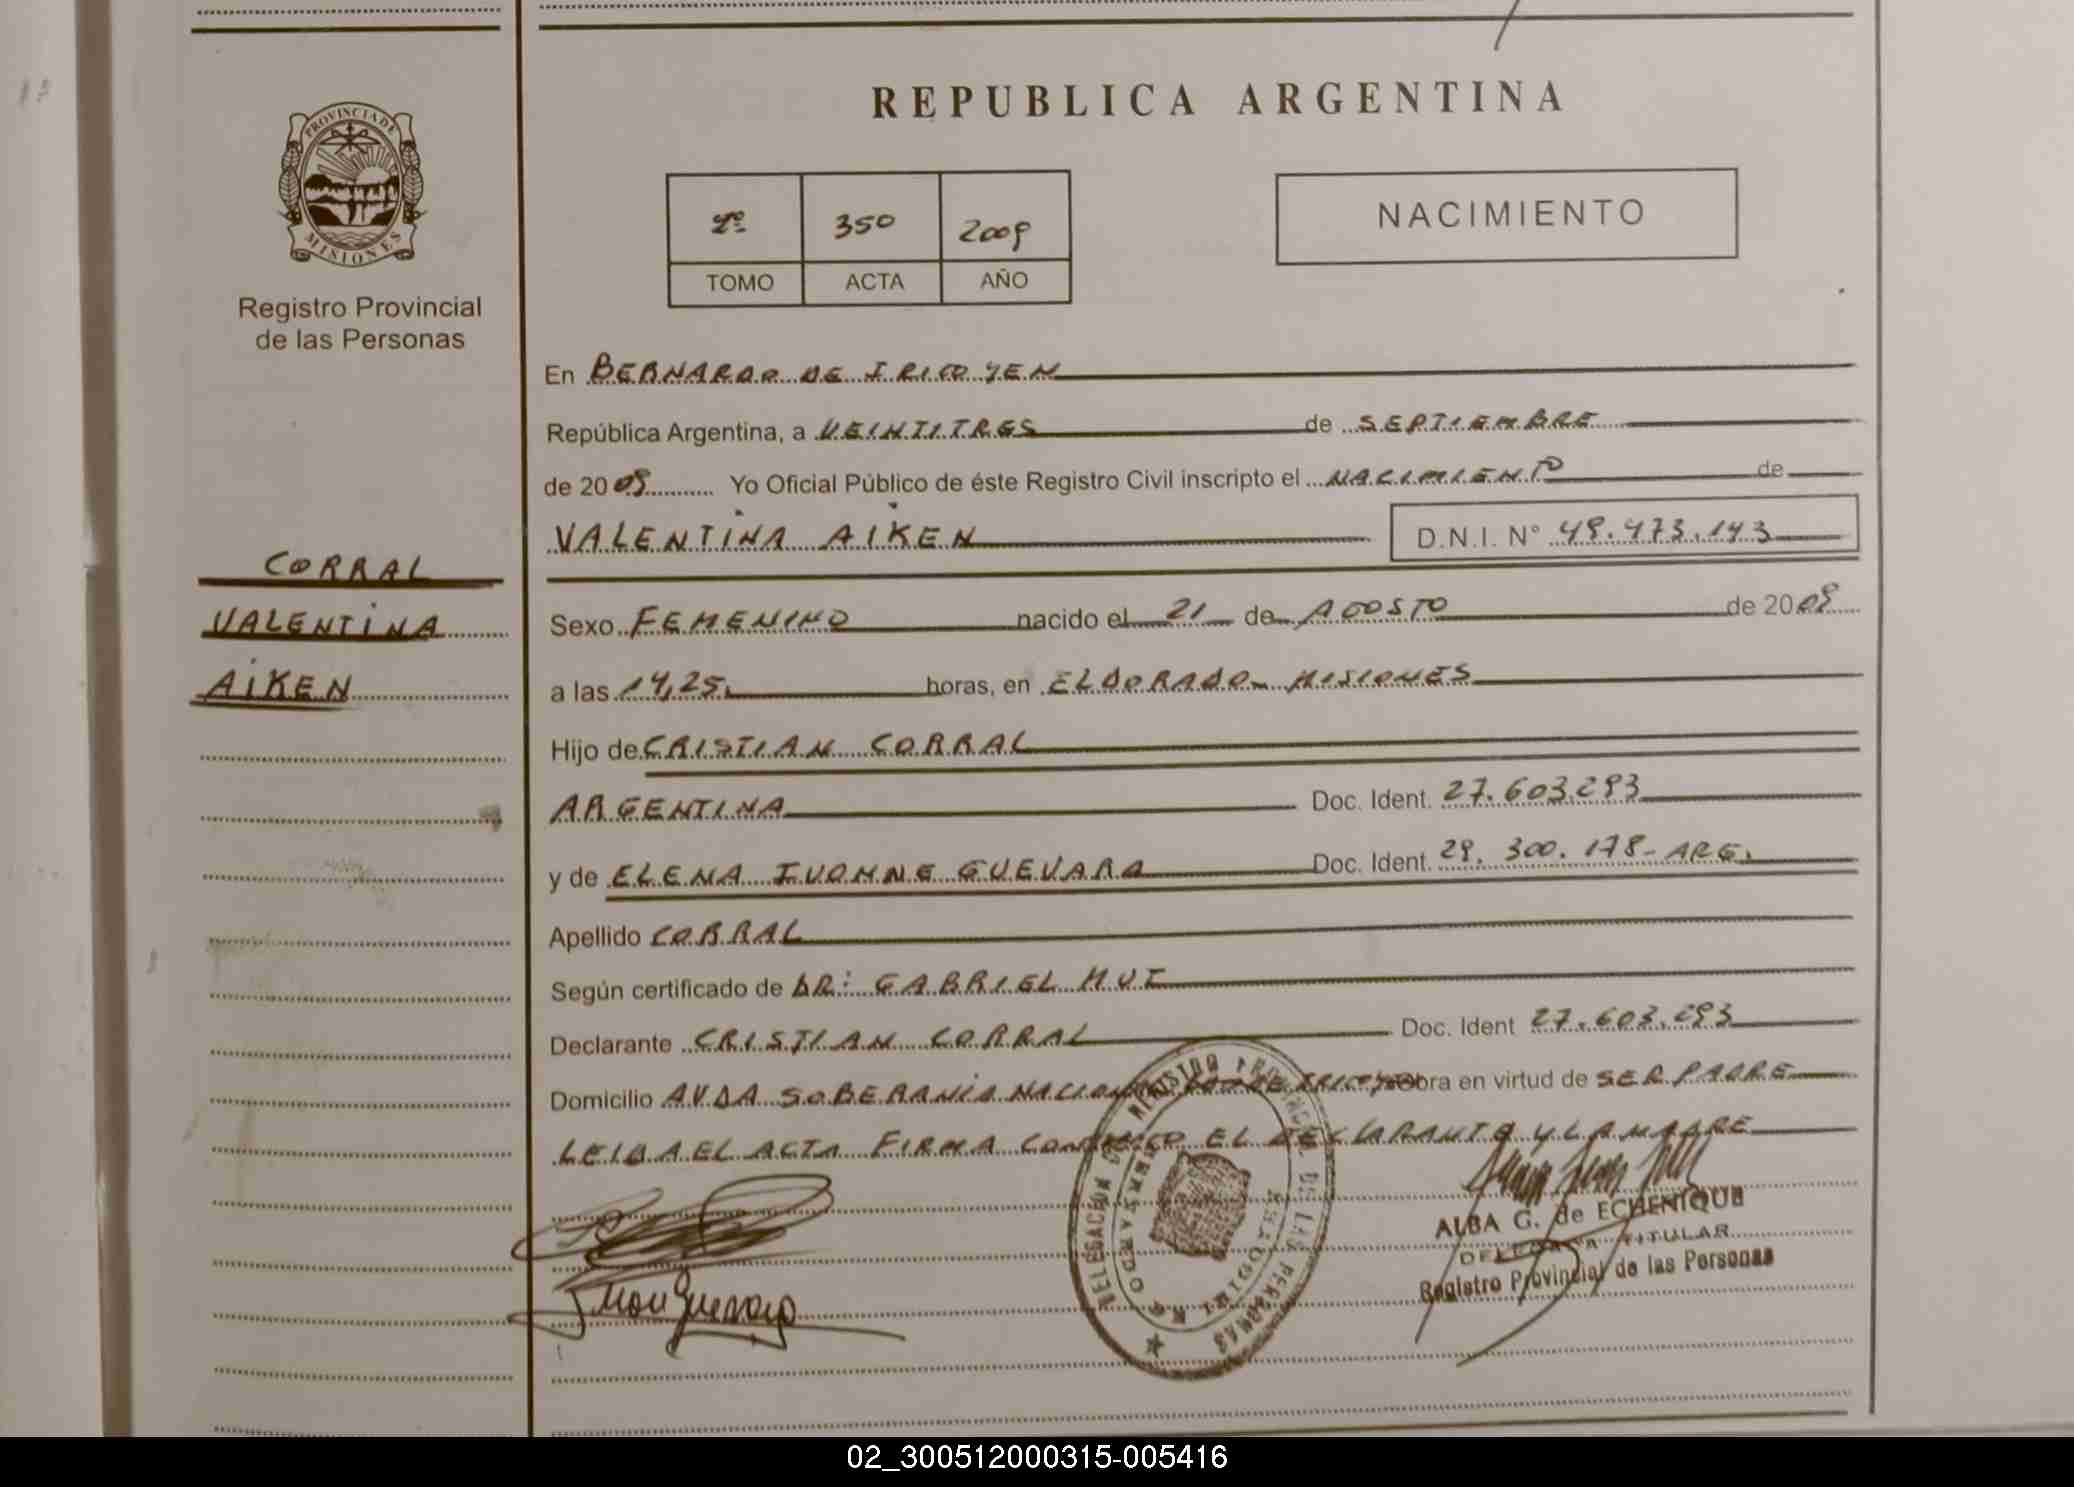 REPUBLICA ARGENTINA
PROVINCIA DE
MISIONES
Registro Provincial
de las Personas
2º 350 2009
TOMO ACTA AÑO
NACIMIENTO
En BERNARDO DE IRIGOYEN
República Argentina, a VEINTITRES de SEPTIEMBRE
de 2009 Yo Oficial Público de éste Registro Civil inscripto el NACIMIENTO de
VALENTINA AIKEN D.N.I. Nº 49.473.143
CORRAL
VALENTINA
AIKEN
Sexo FEMENINO nacido el 21 de AGOSTO de 2009
a las 14,25 horas, en ELDORADO- MISIONES
Hijo de CRISTIAN CORRAL
ARGENTINA Doc. Ident. 27.603.293
y de ELENA IVONNE GUEVARA Doc. Ident. 29.300.178- ARG.
Apellido CORRAL
Según certificado de DR: GABRIEL MUT
Declarante CRISTIAN CORRAL Doc. Ident 27.603.293
Domicilio AVDA SOBERANIA NACIONAL BDO DE IRIGOYEN Obra en virtud de SER PADRE
LEIDA EL ACTA FIRMA CONMIGO EL DECLARANTE Y LA MADRE
Guevara
DELEGACION DEL REGISTRO PROVINCIAL DE LAS PERSONAS
BERNARDO DE IRIGOYEN
ALBA G. de ECHENIQUE
DELEGADA TITULAR
Registro Provincial de las Personas
02_300512000315-005416